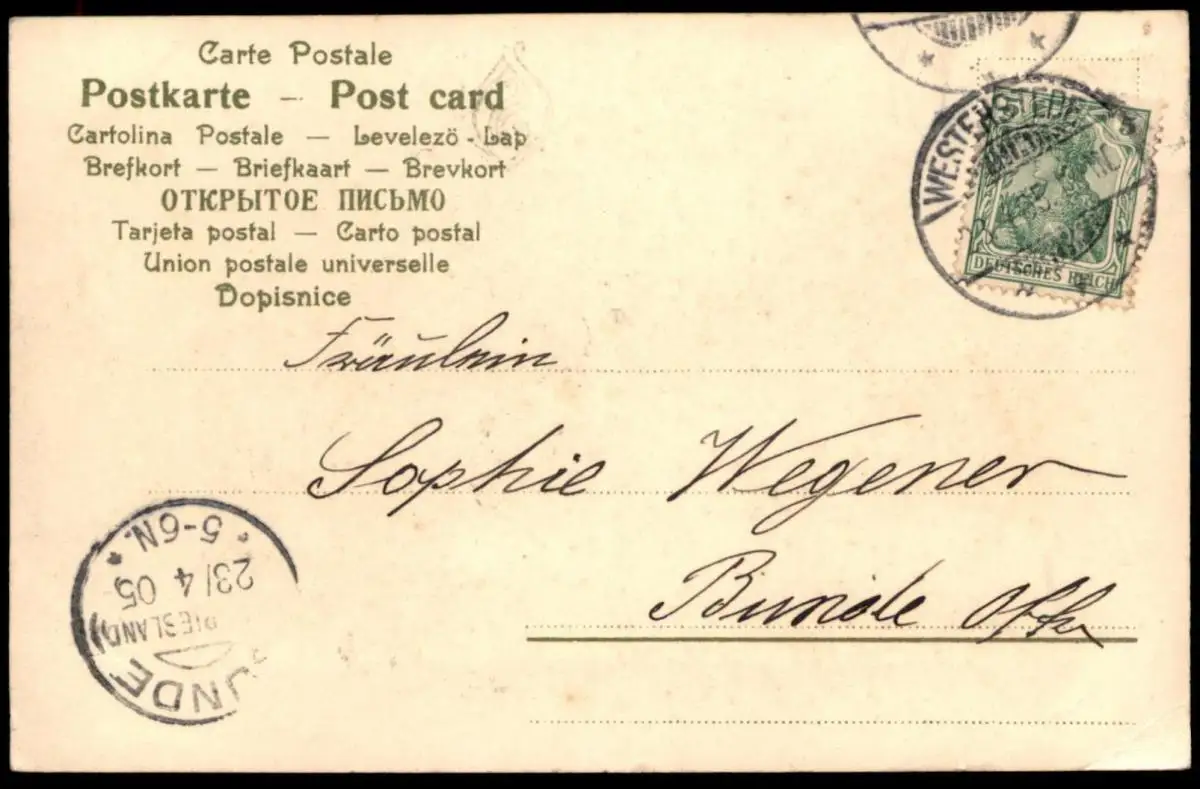 Carte Postale
Postkarte — Post card
Cartolina Postale — Levelezö-Lap
Brefkort — Briefkaart — Brevkort
ОТКРЫТОЕ ПИСЬМО
Tarjeta postal — Carto postal
Union postale universelle
Dopisnice
WESTERSTEDE
DEUTSCHES REICH
Fräulein
Sophie Wegener
Bunde
5-6N.
23/4 05